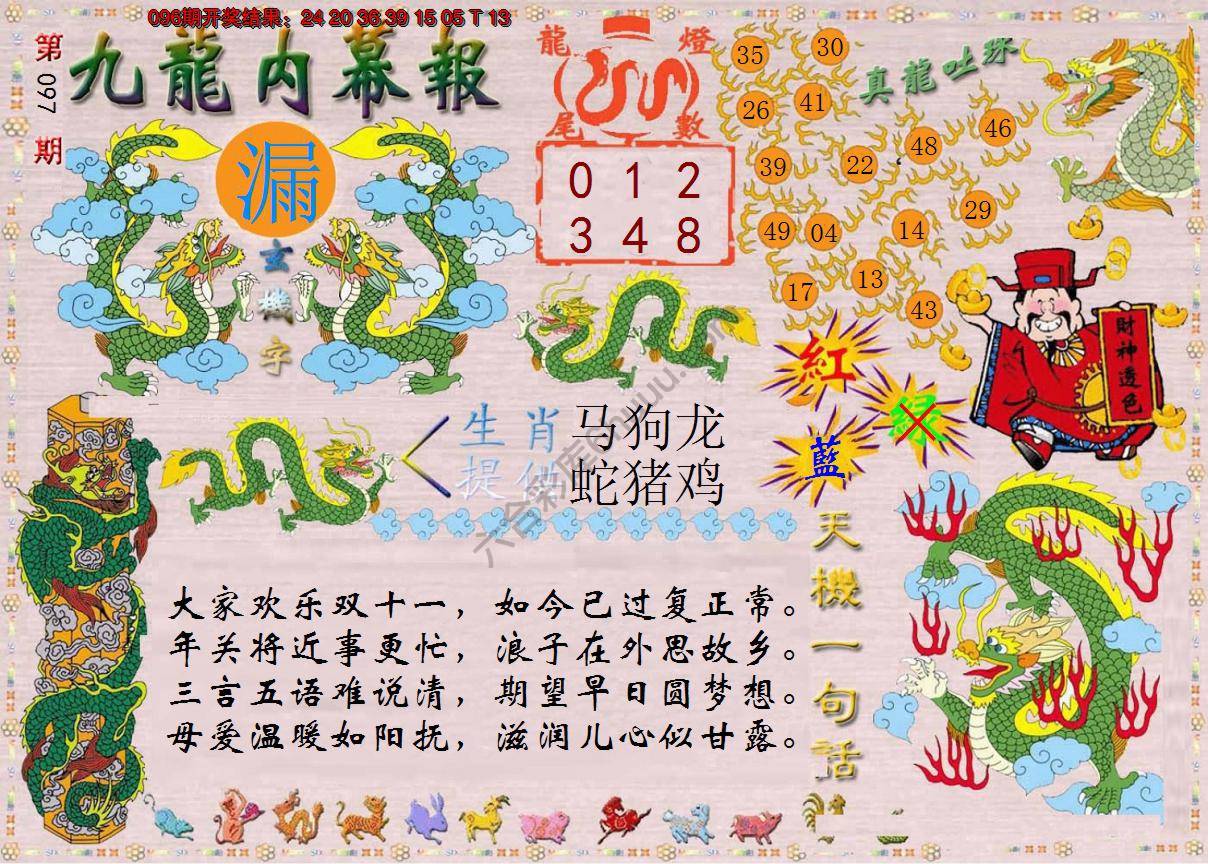 096期开奖结果：24 20 36 39 15 05 T 13
第097期
九龍内幕報
漏
玄機字
龍燈
尾數
0 1 2
3 4 8
真龍吐珠
35 30
26 41
39 22 48 46
49 04 14 29
17 13 43
紅
綠
藍
財神透色
生肖 马狗龙
提供 蛇猪鸡
天機一句话
大家欢乐双十一，如今已过复正常。
年关将近事更忙，浪子在外思故乡。
三言五语难说清，期望早日圆梦想。
母爱温暖如阳抚，滋润儿心似甘露。